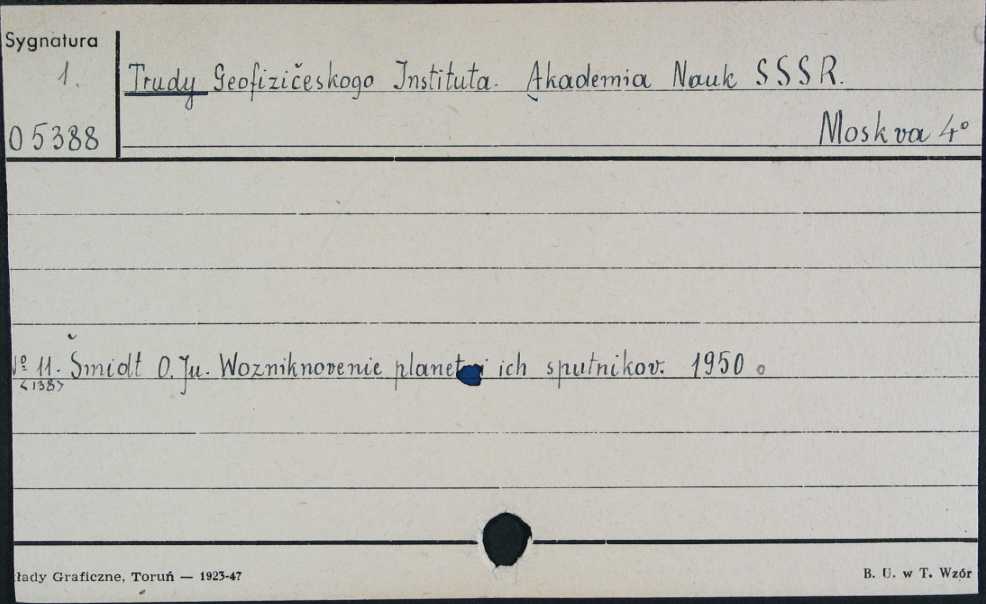 Sygnatura
1.
Trudy Geofizičeskogo Instituta. Akademia Nauk SSSR.
05388
Moskva 4°
№ 11. Šmidt O. Ju. Wozniknovenie planet i ich sputnikov. 1950
<138>
łady Graficzne, Toruń — 1923-47
B. U. w T. Wzór